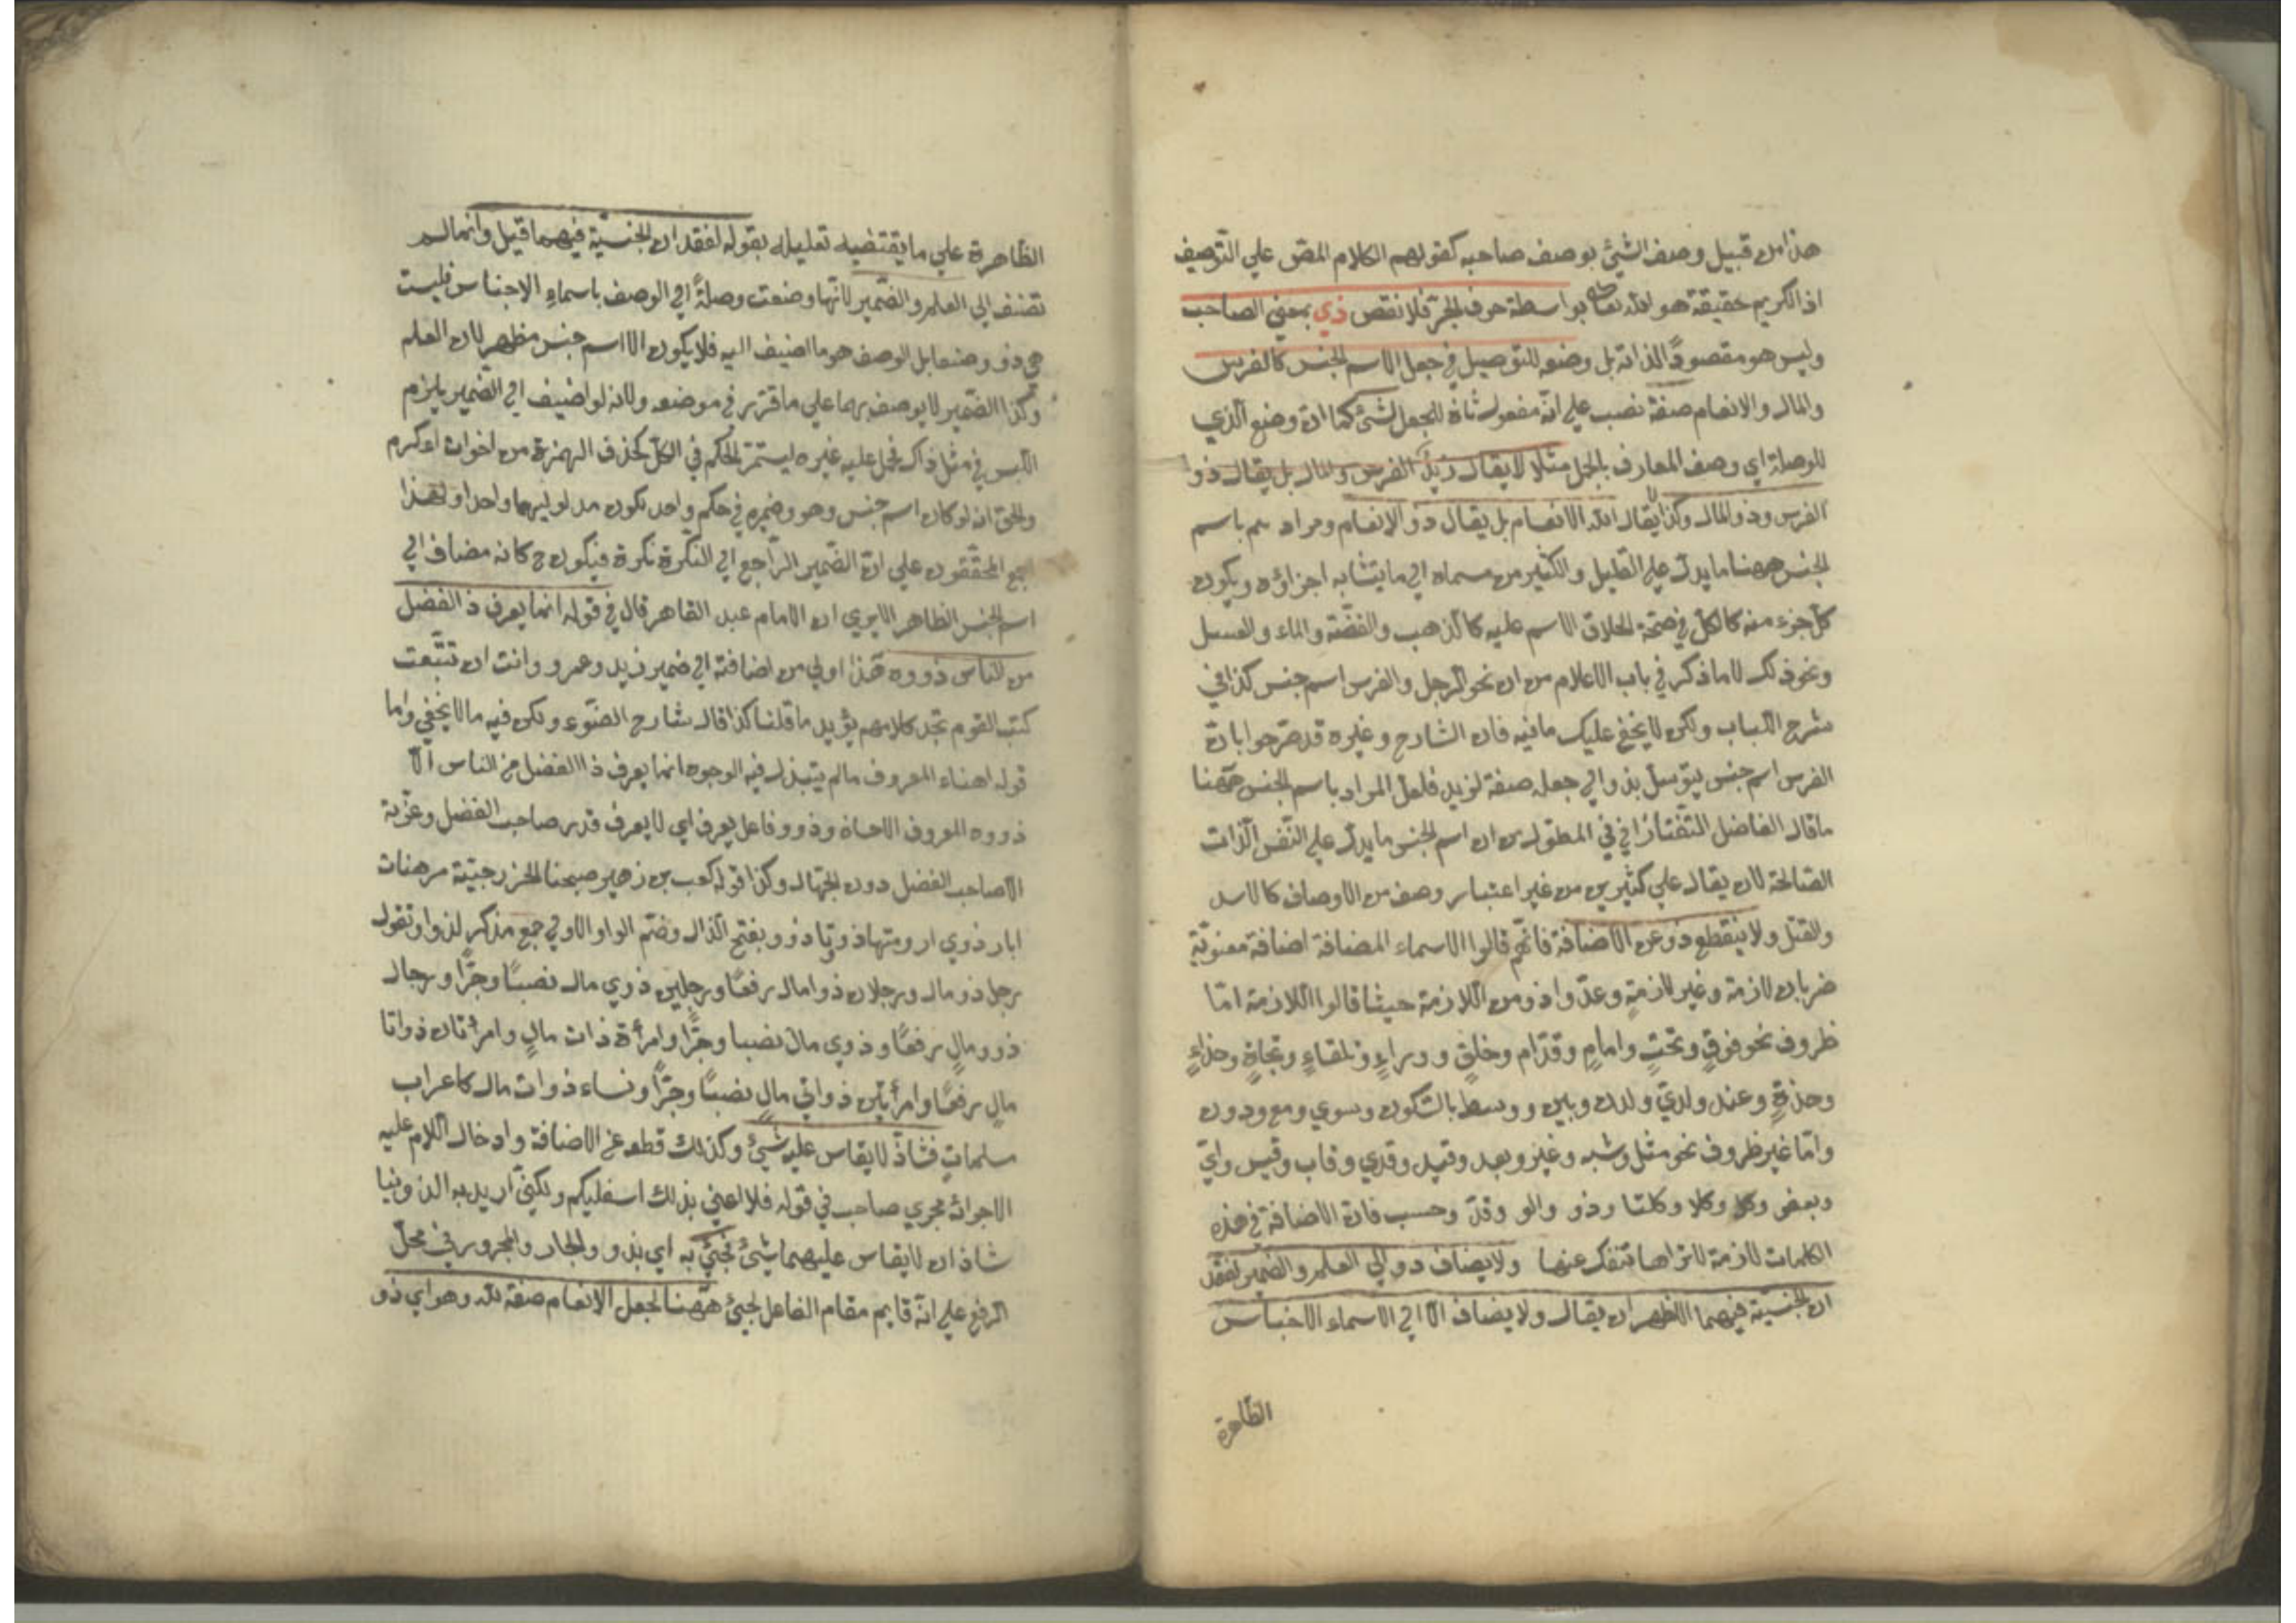 هذا من قبيل وصف الشئ بوصف صاحبه كقولهم الكلام المقر علي التوصيف
اذ الكريم حقيقة هو الله تعالى بواسطة حرف الجر فلا نقص ذي بمعني الصاحب
وليس هو مقصودًا لذاته بل وضعه للتوصيل في جعل الاسم الجنس كالفرس
والمال والانعام صفة نصب علي انه مفعول ثان للجعل لشئ كما ان وضع الذي
للوصلة اي وصف المعارف بالجمل مثلا لا يقال زيد الفرس والمال بل يقال ذو
الفرس وذو المال وكذا لا يقال الله الانعام بل يقال ذو الانعام ومرادهم باسم
الجنس ههنا ما يدل علي القليل والكثير من مسماه اي ما يتشابه اجزاؤه ويكون
كل جزء منه كالكل في صحة اطلاق الاسم عليه كالذهب والفضة والماء والعسل
ونحو ذلك لا ما ذكر في باب الاعلام من ان نحو الرجل والفرس اسم جنس كذا في
شرح اللباب ولكن لا يخفي عليك ما فيه فان الشارح وغيره قد صرحوا بان
الفرس اسم جنس يتوسل بذو الي جعله صفة لزيد فلعل المراد باسم الجنس ههنا
ما قال الفاضل التفتازاني في المطول من ان اسم الجنس ما يدل علي النفس الذات
الصالحة لان يقال علي كثيرين من غير اعتبار وصف من الاوصاف كالاسد
والقتل ولا ينقطع ذو عن الاضافة فانهم قالوا الاسماء المضافة اضافة معنوية
ضربان لازمة وغير لازمة وعدوا ذو من اللازمة حيث قالوا اللازمة اما
ظروف نحو فوق وتحت وامام وقدام وخلف ووراء وتلقاء وتجاه وحذاء
وحذة وعند ولدي ولدن وبين ووسط بالسكون وسوي ومع ودون
واما غير ظروف نحو مثل وشبه وغير وبعد وقيد وقدي وقاب وقيس واي
وبعض وكل وكلا وكلتا وذو والو وقد وحسب فان الاضافة في هذه
الكلمات لازمة لا تراها تنفك عنها ولا يضاف ذو الي العلم والضمير لفقد
ان الجنسية فيهما الاظهر ان يقال ولا يضاف الا الي الاسماء الاجناس
الظاهرة
الظاهرة علي ما يقتضيه تعليله بقوله لفقدان الجنسية فيهما قيل وانما لم
تضف الي العلم والضمير لانها وضعت وصلة الي الوصف باسماء الاجناس فليست
هي ذو وصفا بل الوصف هو ما اضيف اليه فلا يكون الا اسم جنس مظهر لان العلم
وكذا الضمير لا يوصف بهما علي ما قرر في موضعه ولانه لو اضيف الي الضمير يلزم
اللبس في مثل ذاك فحمل عليه غيره ليستمر الحكم في الكل كحذف الهمزة من اخوات اوكرم
والحق انه لو كان اسم جنس وهو وضميره في حكم واحد يكون مدلوليهما واحدا ولهذا
اجمع المحققون علي ان الضمير الراجع الي النكرة نكرة فيكون ح كانه مضاف الي
اسم الجنس الظاهر الا يري ان الامام عبد القاهر قال في قوله انما يعرف ذا الفضل
من الناس ذووه هذا اولي من اضافته الي ضمير زيد وعمرو وانت ان تتبعت
كتب القوم تجد كلامهم يؤيد ما قلنا كذا قال شارح الضوء ولكن فيه ما لا يخفي واما
قوله اهناء المعروف ما لم يتبذل فيه الوجوه انما يعرف ذا الفضل من الناس الا
ذووه المعروف الاحسان وذوو فاعل يعرف اي لا يعرف قدر صاحب الفضل وعزية
الا صاحب الفضل دون الجهال وكذا قوله كعب بن زهير صبحنا الخزرجية مرهفات
ابار ذوي ارومتها ذووها ذوو بفتح الذال وضم الواو الاولي جمع مذكر لذو وتقول
رجل ذو مال ورجلان ذوا مال رفعًا ورجلين ذوي مال نصبًا وجرًا ورجال
ذوو مالٍ رفعًا وذوي مال نصبا وجرًا وامرأة ذات مالٍ وامرأتان ذواتا
مالٍ رفعًا وامرأتين ذواتي مالٍ نصبًا وجرًا ونساء ذوات مال كاعراب
سلماتٍ فشاذ لا يقاس عليه شئ وكذلك قطعه عن الاضافة وادخال اللام عليه
الاجراؤه مجري صاحب في قوله فلا اعني بذلك اسفليكم ولكني اريد به الذوينا
شاذان لا يقاس عليهما شئ فجئ به اي بذو والجار والمجرور في محل
الرفع علي انه قايم مقام الفاعل لجئ ههنا لجعل الانعام صفة لله وهو اي ذو